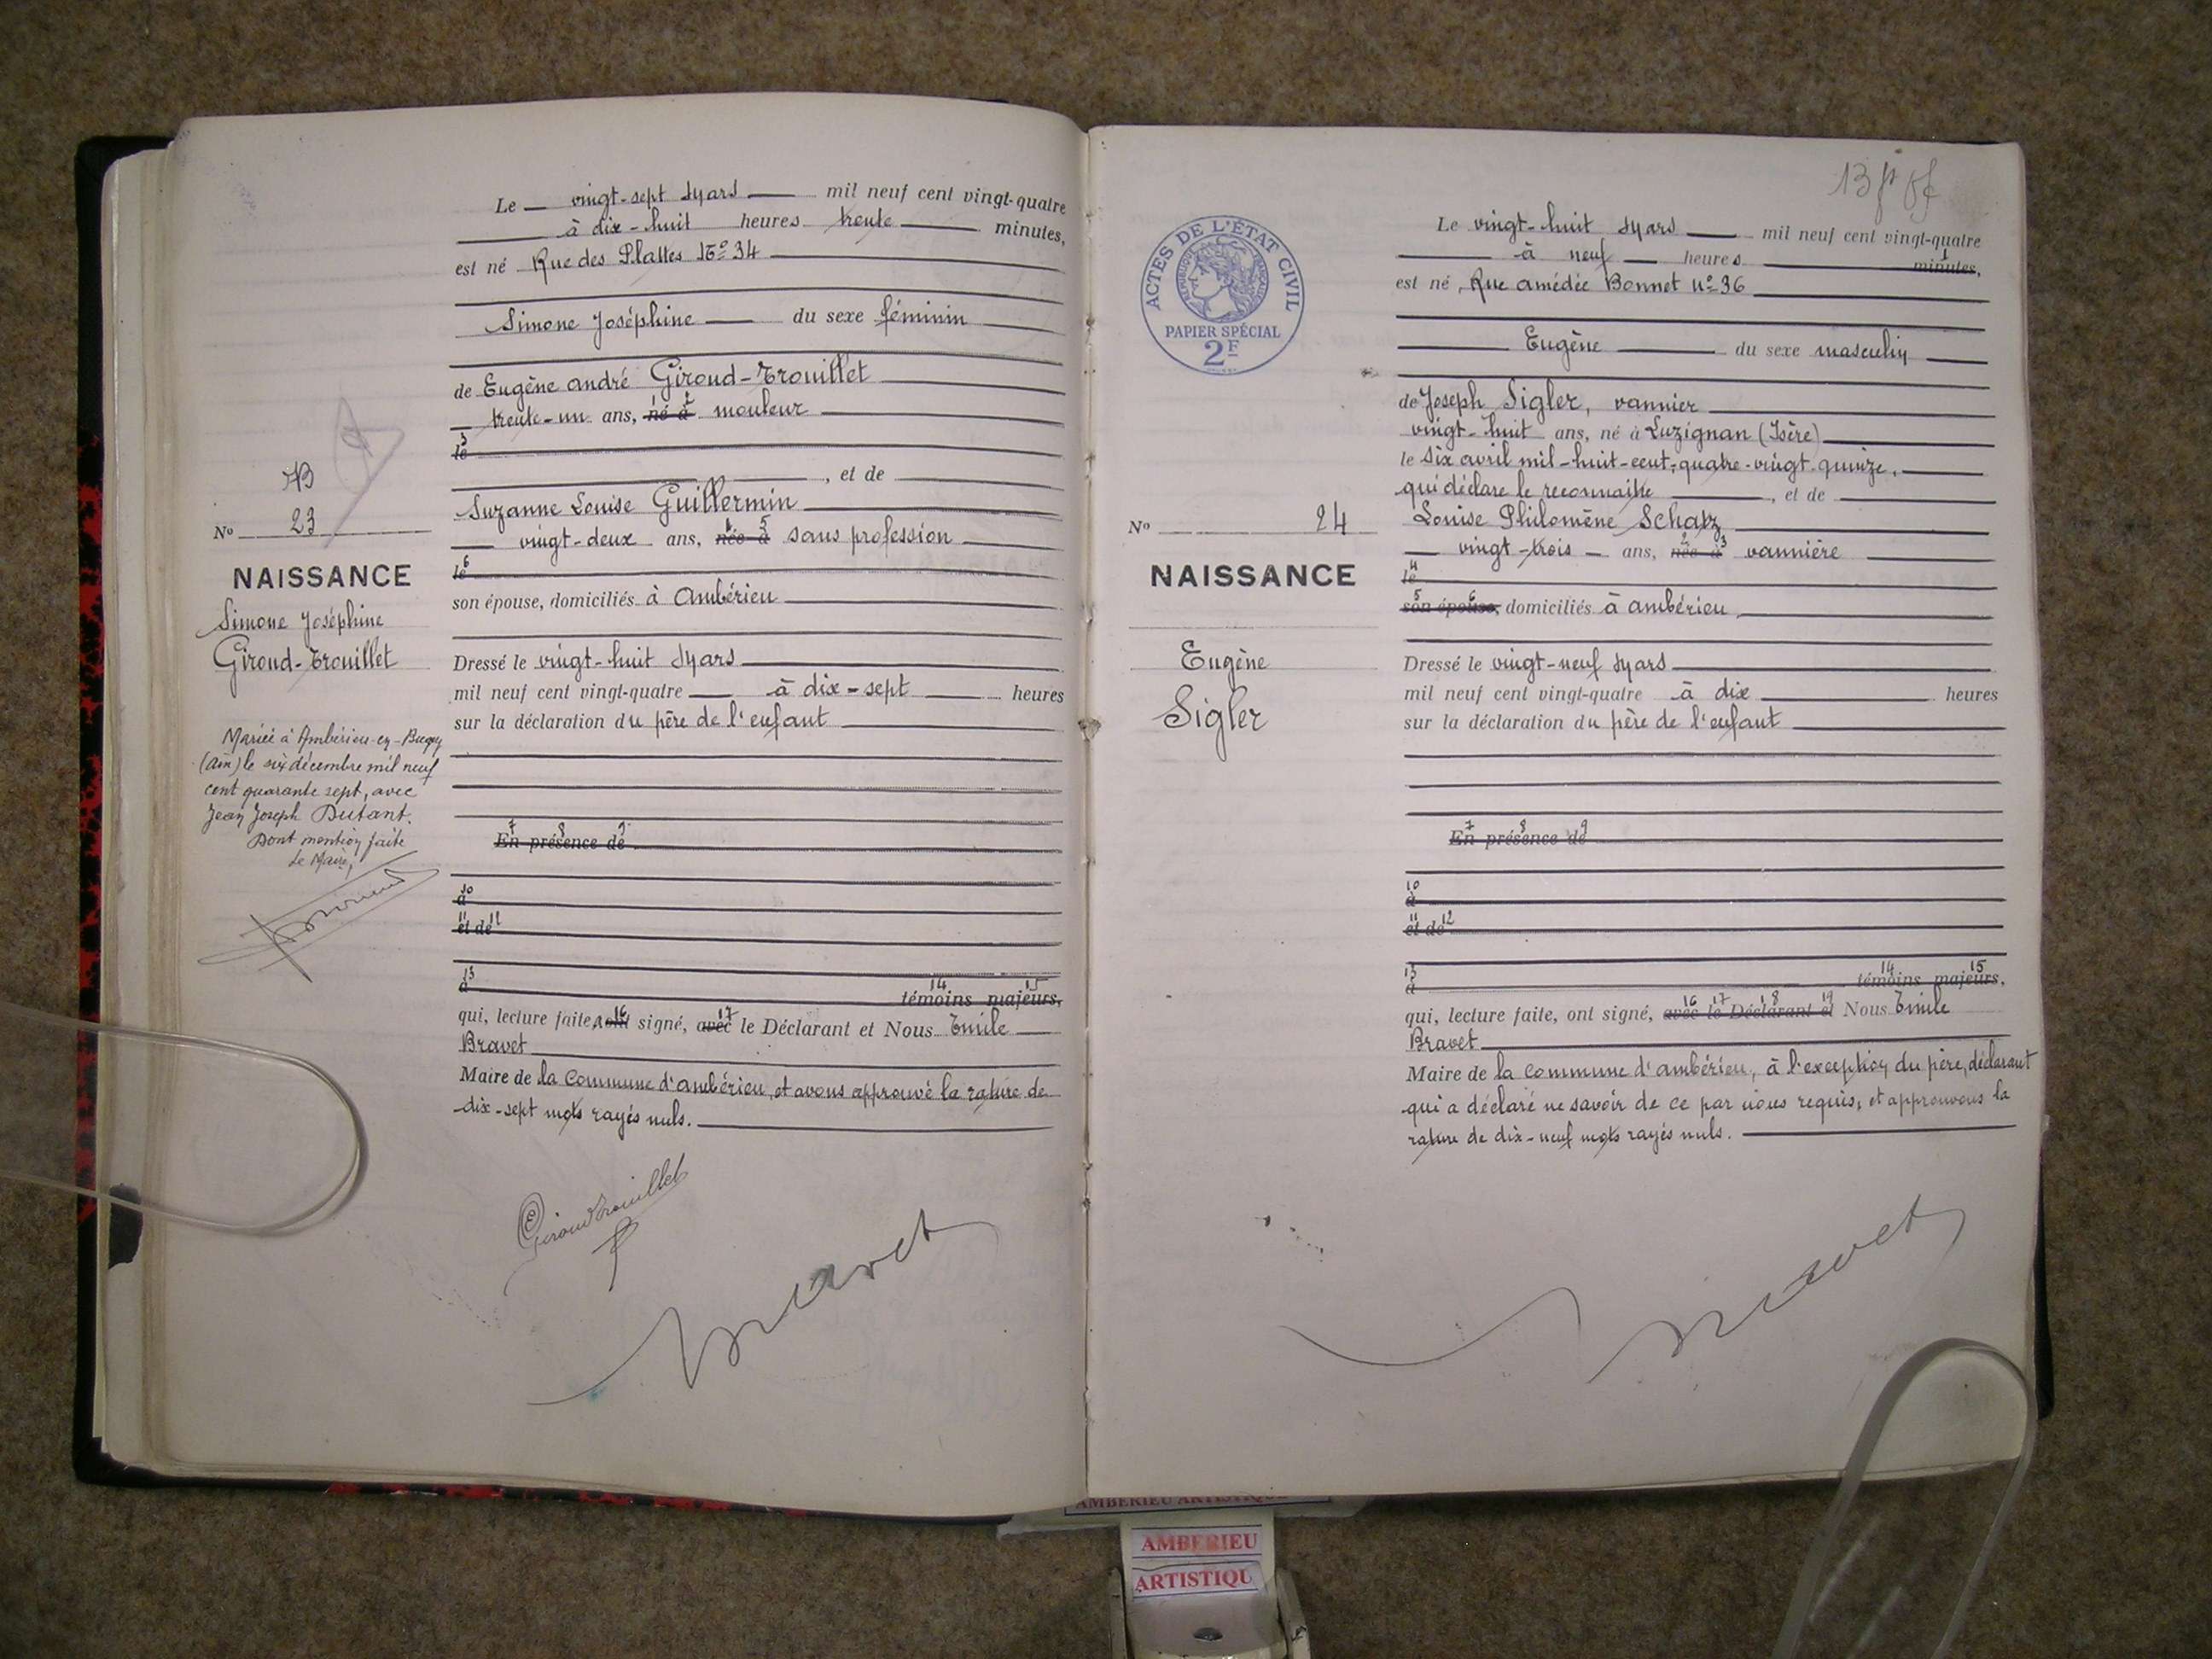 Le vingt-sept Mars mil neuf cent vingt-quatre
à dix-huit heures trente minutes,
est né Rue des Plattes No 34
Simone Joséphine du sexe féminin
de Eugène André Giroud-Trouillet
trente-un ans, né à mouleur
le
, et de
Suzanne Louise Guillermin
vingt-deux ans, née à sans profession
le
son épouse, domiciliés à Ambérieu
Dressé le vingt-huit Mars
mil neuf cent vingt-quatre à dix-sept heures
sur la déclaration du père de l'enfant
7 8 9
En présence de
10
à
11 12
et de
13
à
14 15
témoins majeurs,
qui, lecture faite, a signé, avec le Déclarant et Nous Emile
Bravet
Maire de la Commune d'Ambérieu, et avons approuvé la rature de
dix-sept mots rayés nuls.
Giroud Trouillet
Bravet
No 23
NAISSANCE
Simone Joséphine
Giroud-Trouillet
Mariée à Ambérieu-en-Bugey
(Ain) le six décembre mil neuf
cent quarante sept, avec
Jean Joseph Dutant.
Dont mention faite
Le Maire,
13
ACTES DE L'ÉTAT CIVIL
RÉPUBLIQUE FRANÇAISE
PAPIER SPÉCIAL
2F
Le vingt-huit Mars mil neuf cent vingt-quatre
à neuf heures minutes,
est né, Rue Amédée Bonnet No 36
Eugène du sexe masculin
de Joseph Sigler, vannier
vingt-huit ans, né à Luzignan (Isère)
le six avril mil-huit-cent-quatre-vingt-quinze,
qui déclare le reconnaître, et de
Louise Philomène Schatz
vingt-trois ans, née à vannière
le
son épouse, domiciliés à Ambérieu
Dressé le vingt-neuf Mars
mil neuf cent vingt-quatre à dix heures
sur la déclaration du père de l'enfant
7 8 9
En présence de
10
à
11 12
et de
13
à
14 15
témoins majeurs,
16 17 18 19
qui, lecture faite, ont signé, avec le Déclarant et Nous Emile
Bravet
Maire de la Commune d'Ambérieu, à l'exception du père, déclarant
qui a déclaré ne savoir de ce par nous requis, et approuvons la
rature de dix-neuf mots rayés nuls.
Bravet
No 24
NAISSANCE
Eugène
Sigler
AMBERIEU ARTISTIQUE
AMBERIEU
ARTISTIQU